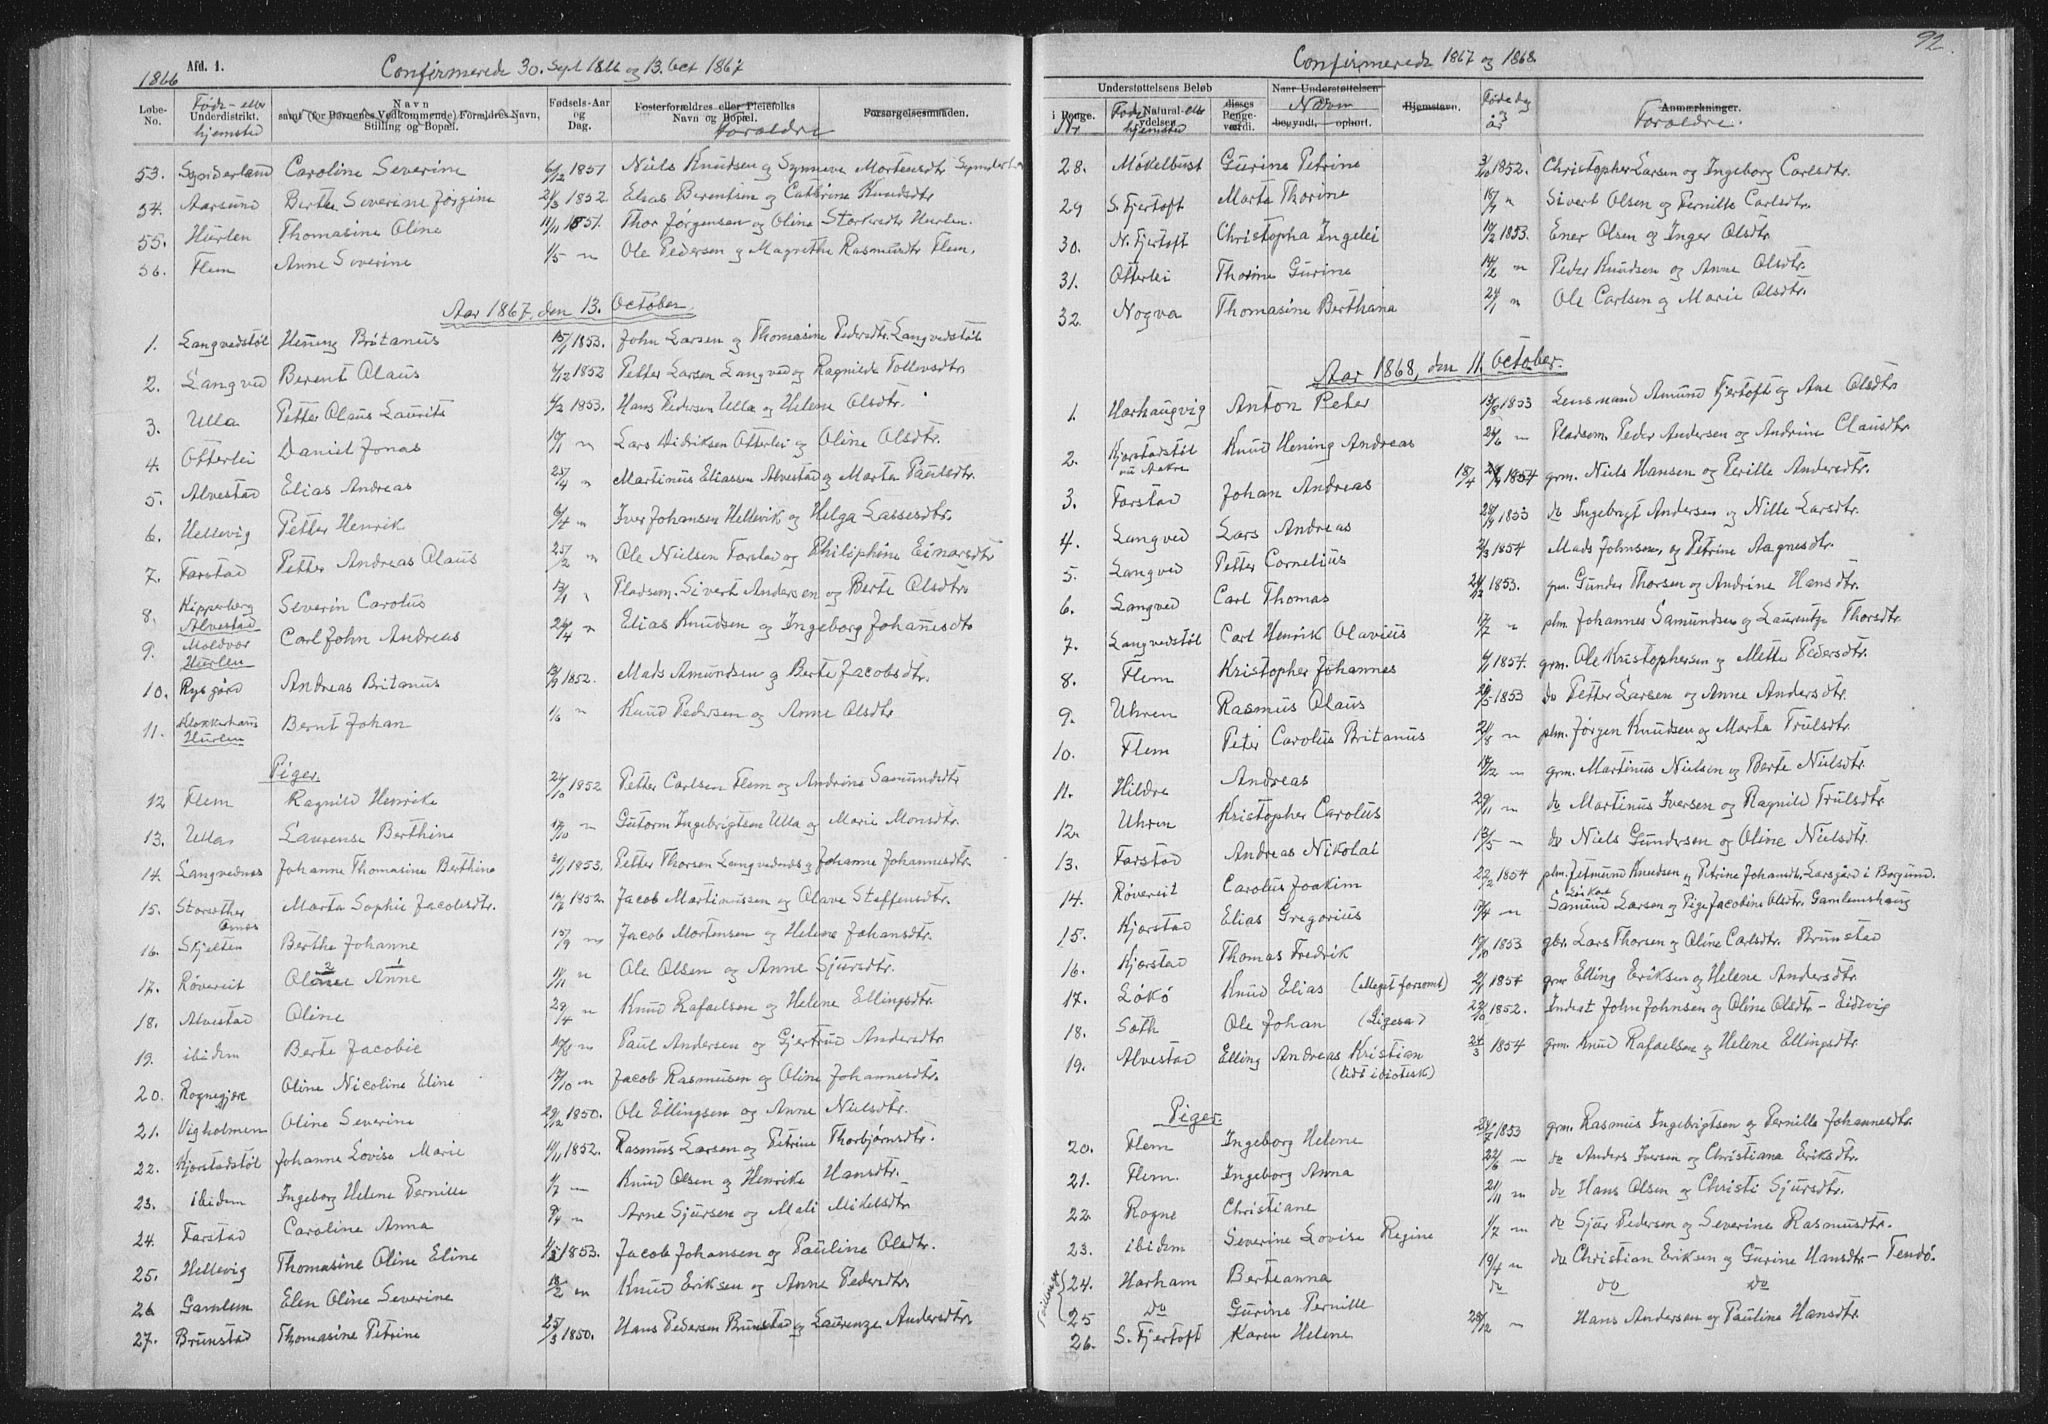 1866 Afd. 1. Confirmerede 30. Sept 1866 og 13. Oct 1867
Løbe-No. Føde- eller Underdistrikt. hjemsted Navn samt (for Børnenes Vedkommende) Forældres Navn, Stilling og Bopæl. Fødsels-Aar og Dag. Fosterforældres eller Pleiefolks Navn og Bopæl. Foraldre Forsørgelsesmaaden.
53. Synderland Caroline Severine 6/2 1851 Niels Knudsen og Synneve Mortensdtr
54. Aarsund Berthe Severine Jørgine 21/3 1852 Elias Berentsen og Cathrine Knudsdtr
55. Hurlen Thomasine Oline 11/11 1851. Thor Jørgensen og Oline Hurlen.
56. Flem Anne Severine 1/5 " Ole Pedersen og Magrethe Rasmusdtr Flem.
Aar 1867, den 13. October.
1. Langvedstøl Hening Britanus 15/1 1853. John Larsen og Thomasine Pedersdtr. Langvedstøl
2. Langved Berent Olaus 6/12 1852 Petter Larsen Langved og Ragnilde Tollevsdtr.
3. Ulla Petter Olaus Laurits 6/2 1853. Hans Pedersen Ulla og Helene Olsdtr.
4. Otterlei Daniel Jonas 10/1 " Lars Didriksen Otterlei og Oline Olsdtr.
5. Alvestad Elias Andreas 25/4 " Martinus Eliassen Alvestad og Marte Paulsdtr.
6. Hellevig Petter Henrik 6/4 " Iver Johansen Hellevik og Helga Lassesdtr.
7. Farstad Petter Andreas Olaus 25/2 " Ole Nielsen Farstad og Philiphine Einarsdtr
8. Kipperberg Alvestad Severin Carolus 13/1 " Pladsem. Sivert Andersen og Berte Olsdtr.
9. Moldvær Hurlen Carl John Andreas 26/4 " Elias Knudsen og Ingeborg Johannesdtr
10. Rysgård Andreas Britanus 13/9 1852. Mads Amundsen og Berte Jacobsdtr.
11. Klokkerhaus Hurlen Bernt Johan 1/6 " Knud Pedersen og Anne Olsdtr
Piger.
12 Flem Ragnild Henrike 24/10 1852 Petter Carlsen Flem og Andrine Samundsdtr
13. Ulla Laurense Berthine 17/10 " Gutorm Ingebrigtsen Ulla og Marie Monsdtr.
14. Langvednæs Johanne Thomasine Berthine 2/1 1853. Petter Thorsen Langvednæs og Johanne Johannesdtr.
15. Storsæther Marta Sophie Jacobsdtr. 14/7 1852. Jacob Martinussen og Olave Steffensdtr.
16. Skjelten Berthe Johanne 15/9 " Jacob Mortensen og Helene Johansdtr.
17. Røvereit Oline 2 Anne 1 11/11 " Ole Olsen og Anne Sjursdtr.
18. Alvestad Oline 29/4 " Knud Rafaelsen og Helene Ellingsdtr.
19. ibidem Berte Jacobie 17/8 " Paul Andersen og Gjertrud Andersdtr.
20. Rognegjære Oline Nicoline Eline 17/10 " Jacob Rasmusen og Oline Johannesdtr.
21. Vigholmen Oline Severine 29/12 1850. Ole Ellingsen og Anne Nielsdtr.
22. Kjorstadstøl Johanne Lovise Marie 11/11 1852. Rasmus Larsen og Petrine Thorbjørnsdtr.
23. ibidem Ingeborg Helene Pernille 1/7 " Knud Olsen og Henrike Hansdtr.
24. Farstad Caroline Anna 9/4 " Arne Sjursen og Mali Mikelsdtr
25. Hellevig Thomasine Oline Eline 1853. Jacob Johansen og Pauline Olsdtr.
26 Gamlem Elen Oline Severine 18/2 " Knud Eriksen og Anne Pedersdtr
27. Brunstad Thomasine Petrine 25/3 1850. Hans Pedersen Brunstad og Laurenze Andersdtr.
92.
Confirmerede 1867 og 1868.
Understøttelsens Beløb Naar Understøttelsen
i Penge. Nr Føde Natural- eller ydelser. hjemsted disses Pengeværdi. Navn begyndt. ophørt. Hjemstavn. Fødedag & år Anmærkninger. Foraldre.
28. Møkelbust Gurine Petrine 3/10 1852. Christopher Larsen og Ingeborg Carlsdtr.
29 S. Fjertoft Marte Thorine 18/9 " Sivert Olsen og Pernille Carlsdtr.
30. N. Fjertoft Christopha Ingelei 19/2 1853. Ener Olsen og Inger Olsdtr.
31. Otterlei Thorine Gurine 14/2 " Peder Knudsen og Anne Olsdtr.
32. Nogva Thomasine Berthana 24/1 " Ole Carlsen og Marie Olsdtr.
Aar 1868, den 11. October.
1. Harhaugvig Anton Peter 13/8 1853 Lensmand Amund Fjertoft og Ane Olsdtr
2. Kjorstadstøl u. Aakre Knud Hening Andreas 26/6 " Pladsem. Peder Andersen og Andrine Clausdtr
3. Farstad Johan Andreas 18/4 1854 grm. Niels Hansen og Perille Andersdtr.
4. Langved Lars Andreas 28/9 1853 do Ingebrigt Andersen og Nille Larsdtr.
5. Langved Petter Cornelius 2/3 1854 Mads Johnsen, og Petrine Aagnesdtr.
6. Langved Carl Thomas 24/12 1853. gm. Gunder Thorsen og Andrine Hansdtr.
7. Langvedstøl Carl Henrik Olavius 17/7 " plm Johannes Samundsen og Laurentze Thorsdtr.
8. Flem Kristopher Johannes 6/1 1854. grm. Ole Kristophersen og Mette Pedersdtr.
9. Uhren Rasmus Olaus 1853 do Petter Larsen og Anne Andersdtr.
10. Flem Peter Carolus Britanus 21/8 " plm. Jørgen Knudsen og Marta Trulsdtr.
11. Hildre Andreas 18/12 " grm. Martinus Nielsen og Berte Nielsdtr.
12. Uhren Kristopher Carolus 29/11 " do Martinus Iversen og Ragnild Trulsdtr.
13. Farstad Andreas Nikolai 13/5 " do Niels Gundersen og Oline Nielsdtr.
14. Røvereit Carolus Joakim 22/2 1854 plm. Jetmund Knudsen og Petrine Johansdtr. Larsgård i Borgund.
15. Kjorstad Elias Gregorius 17/4 " Samund Larsen og Pige Jacobine Olsdtr. Gamlemshaug
16. Kjorstad Thomas Fredrik 17/10 1853 gbr. Lars Thorsen og Oline Carlsdtr. Brunstad
17. Løkø Knud Elias (Meget forsomt) 21/1 1854 grm Elling Eriksen og Helene Andersdtr
18. Søth Ole Johan (Ligesaa) 22/10 1852. Inderst John Johnsen og Oline Olsdtr - Eidvig
19. Alvestad Elling Andreas Kristian 24/3 1854 grm. Knud Rafaelsen og Helene Ellingsdtr.
(Lidt idiotisk)
Piger.
20. Flem Ingeborg Helene 24/7 1853 grm. Rasmus Ingebrigtsen og Pernille Johannesdtr.
21. Flem. Ingeborg Anna 22/6 " do Anders Iversen og Christiana Eriksdtr.
22. Rogne Christiane 21/11 " do Hans Olsen og Christi Sjursdtr.
23. ibidem Severine Lovise Regine 1/7 " do Sjur Pedersen og Severine Rasmusdtr.
24. Harham Berteanna 19/4 " do Christian Eriksen og Gurine Hansdtr - Fendø.
25 do Gurine Pernille do do do
26. S. Fjertoft Karen Helene 25/12 " Hans Andersen og Pauline Hansdtr.